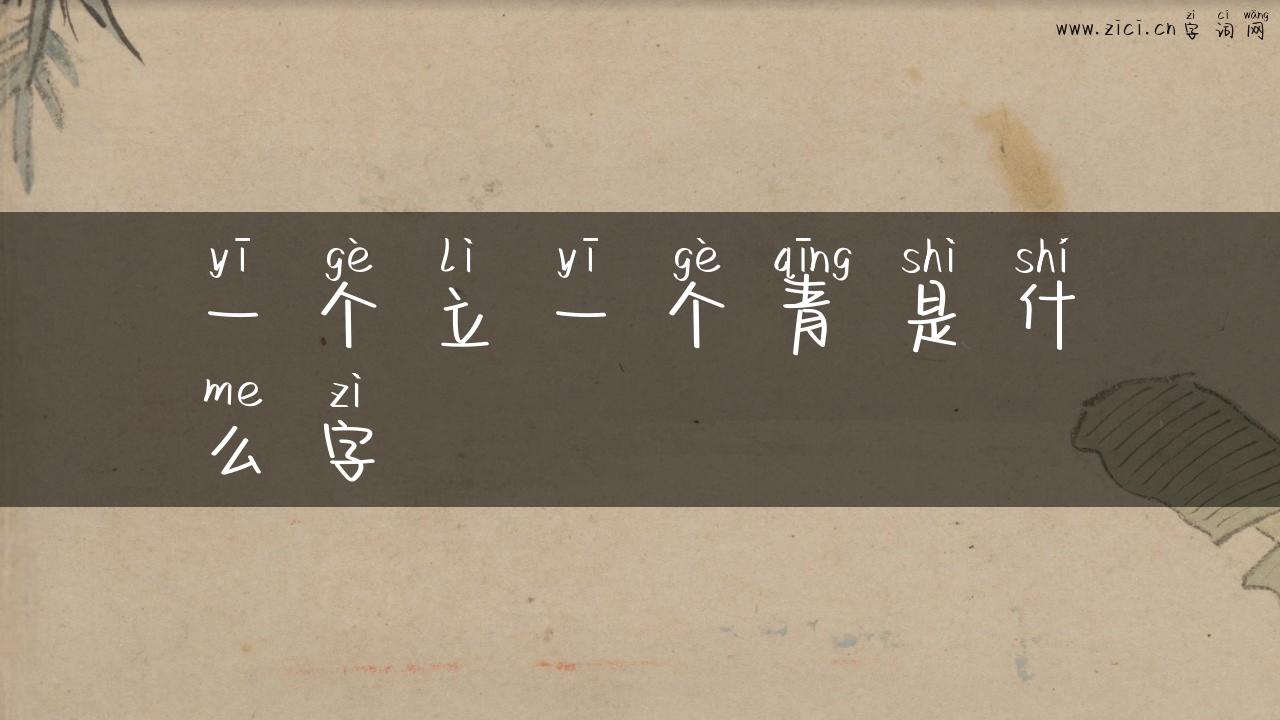 zì cí wǎng
www.zici.cn 字 词 网
yī gè lì yī gè qīng shì shí
一 个 立 一 个 青 是 什
me zì
么 字